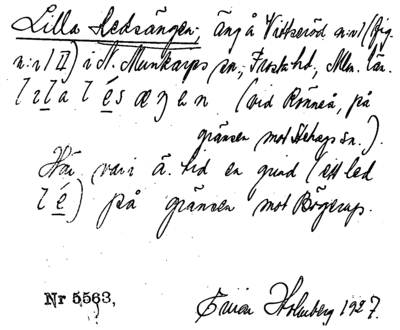 Lilla Ledsängen, äng å Vittseröd n:r 1 (fig.
n:r 1 II) i N. Munkarps sn, Frosta hd, Mlm. län.
(vid Rönneå, på
gränsen mot Hehaps sn.).
Här var i ä. tid en grind (ett led
l é) på gränsen mot Bögerup.
Nr 5563,
Einar Holmberg 1927.